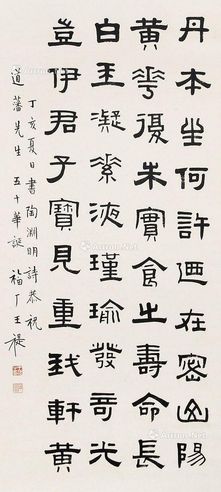 丹木生何許迺在密山陽
黃華復朱實食之壽命長
白玉凝素液瑾瑜發奇光
豈伊君子寶見重我軒黃
丁亥夏日書陶淵明詩恭祝
道藩先生五十華誕 福厂王禔